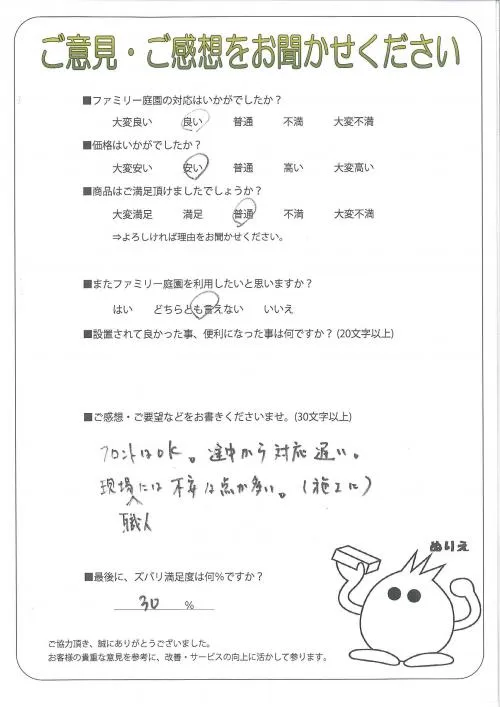 ご意見・ご感想をお聞かせください
■ファミリー庭園の対応はいかがでしたか？
大変良い 良い 普通 不満 大変不満
■価格はいかがでしたか？
大変安い 安い 普通 高い 大変高い
■商品はご満足頂けましたでしょうか？
大変満足 満足 普通 不満 大変不満
⇒よろしければ理由をお聞かせください。
■またファミリー庭園を利用したいと思いますか？
はい どちらとも言えない いいえ
■設置されて良かった事、便利になった事は何ですか？(20文字以上)
■ご感想・ご要望などをお書きくださいませ。(30文字以上)
フロントはOK。途中から対応遅い。
現場には不安な点が多い。(施工に)
職人
ぬりえ
■最後に、ズバリ満足度は何％ですか？
30 %
ご協力頂き、誠にありがとうございました。
お客様の貴重な意見を参考に、改善・サービスの向上に活かして参ります。